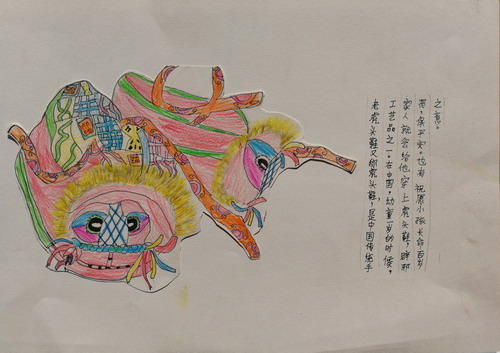 老虎头鞋又称虎头鞋，是中国传统手
工艺品之一。在中国，幼童一岁的时候，
家人就会给他穿上虎头鞋，辟邪
，保平安。也有祝愿小孩长命百岁
之意。